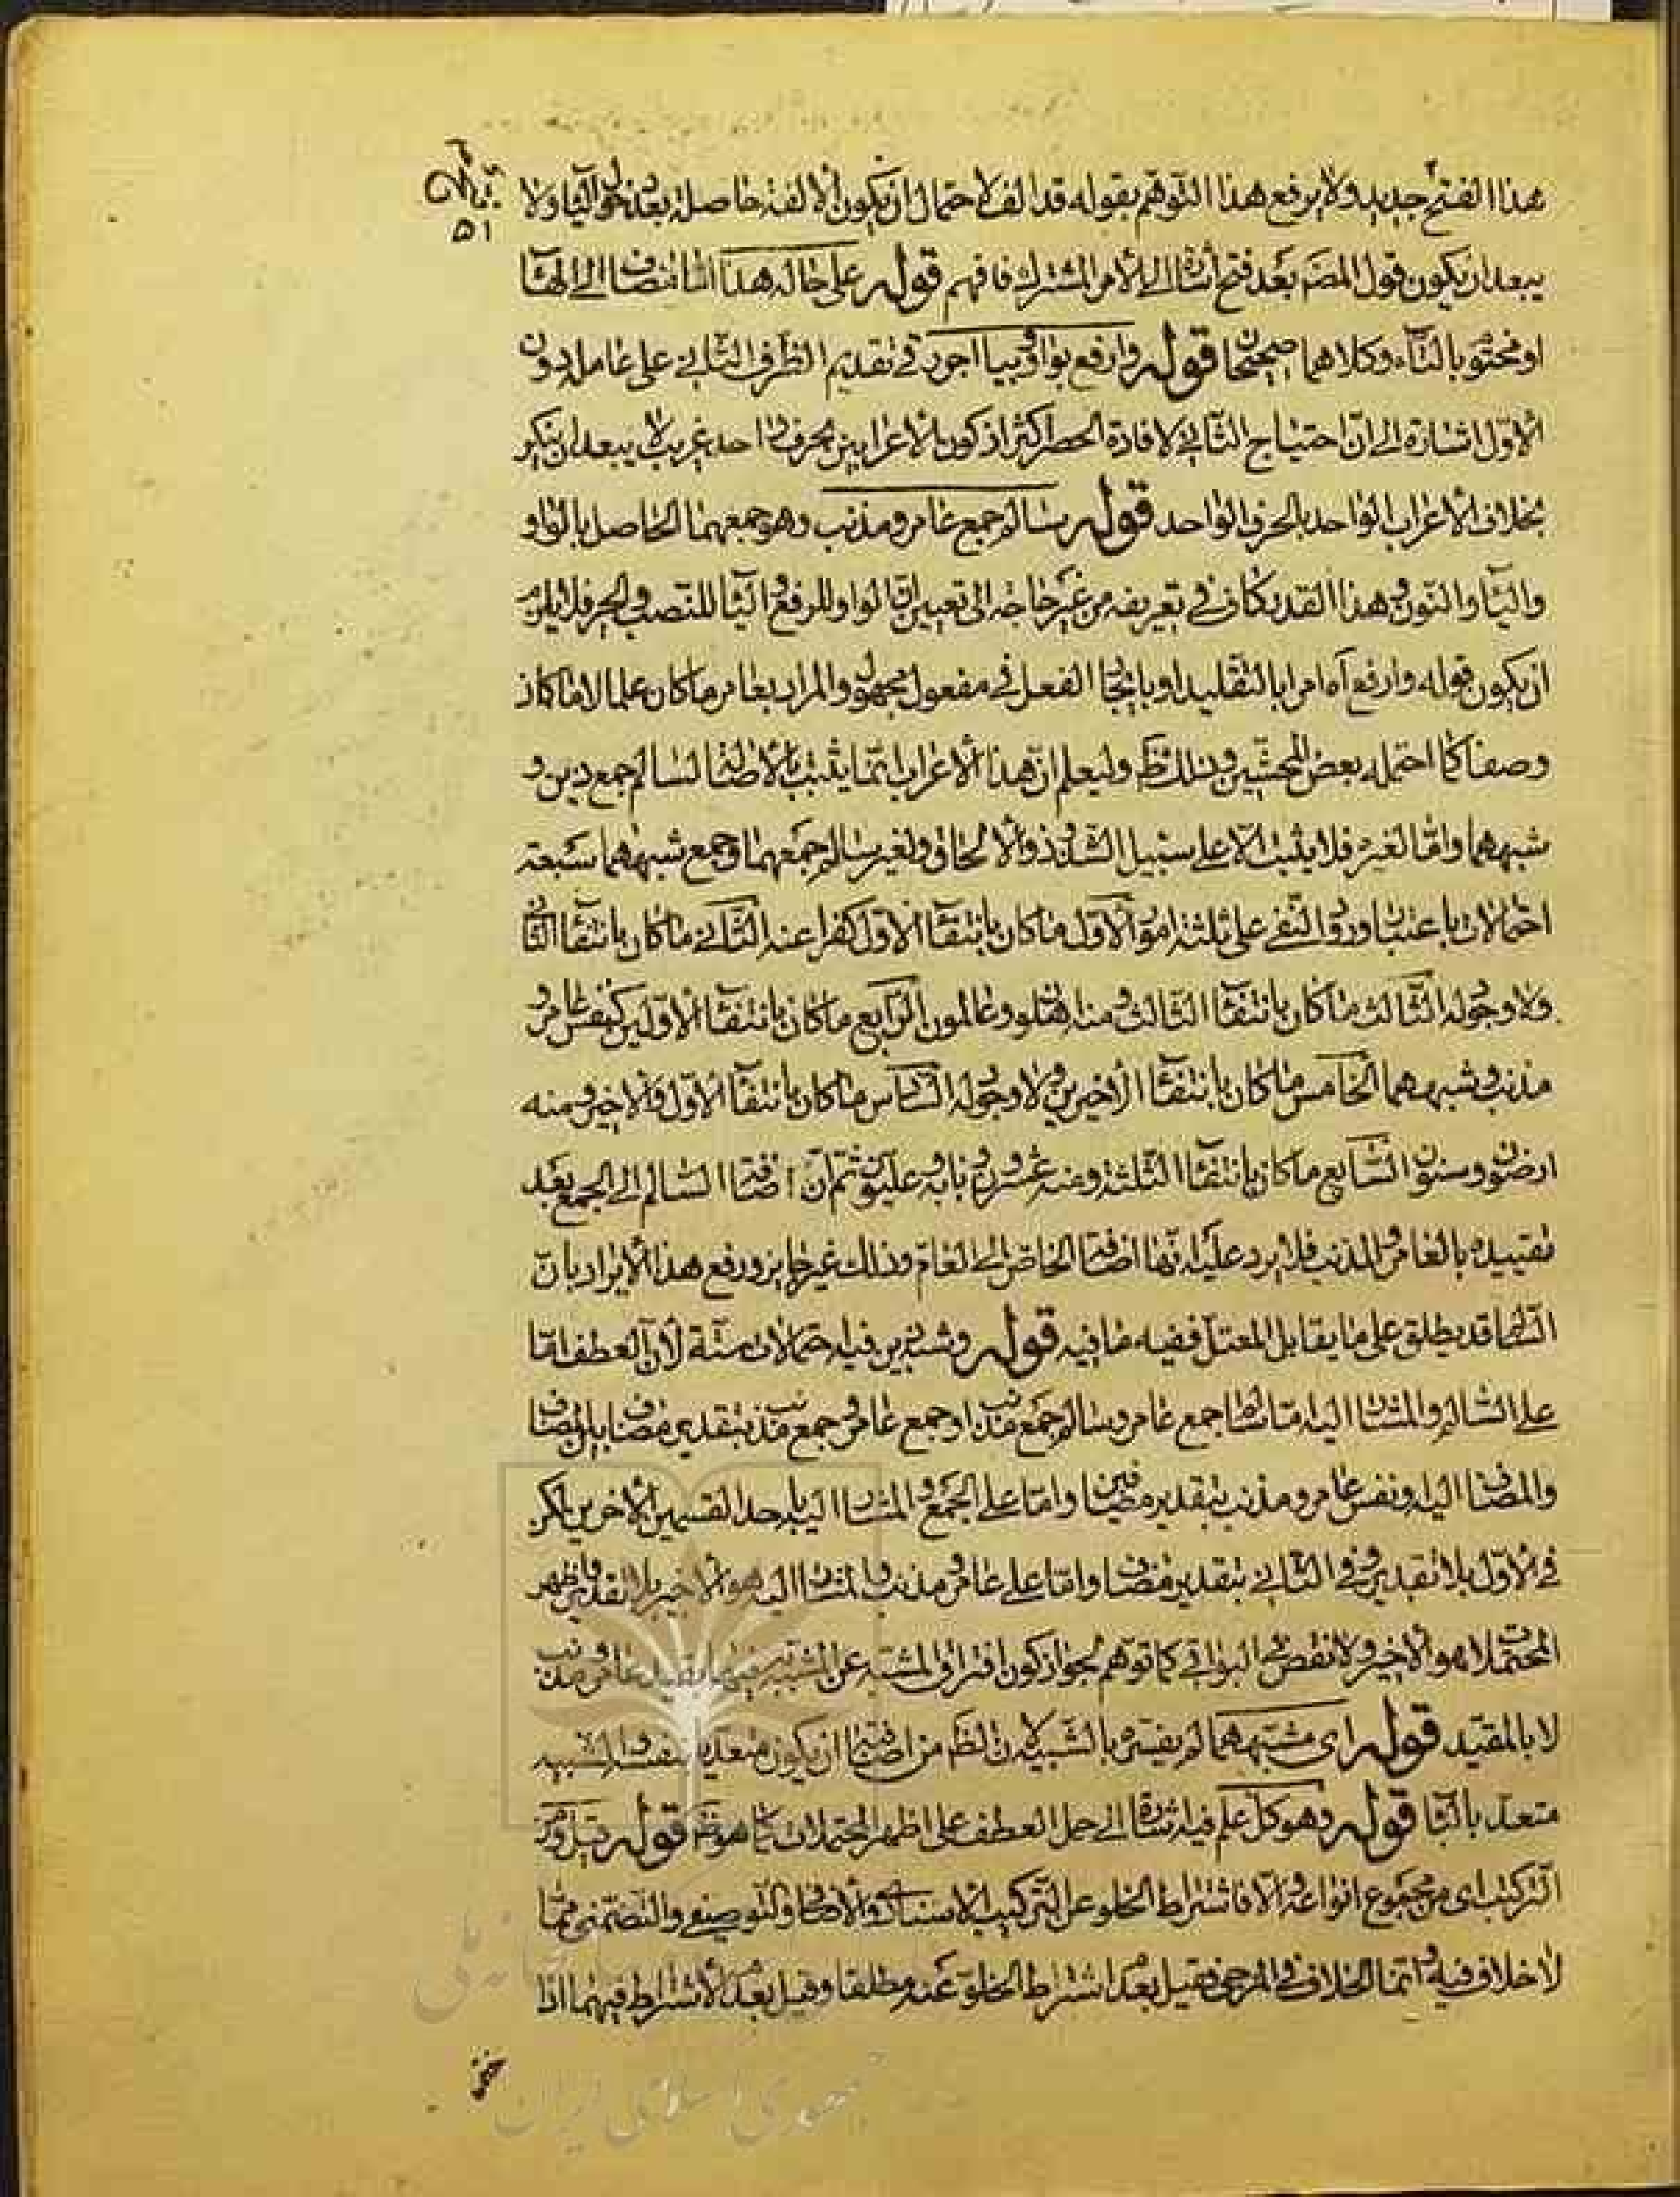 هذا الفتح جديد ولا يرفع هذا التوهم بقوله قد الف لاحتمال ان يكون الالفة حاصلة بعد دخول اليا ولا
٥١
يبعد ان يكون قول المصـ بعد فتح اشارة الى الامر المشترك فافهم قوله على حاله هذا اما مضاف الى الهاء
او مختوم بالتاء وكلاهما صحيحان قوله وارفع بواو وبيا اجرر في تقديم الظرف الثاني على عامله دون
الاول اشارة الى ان احتياج الثاني لافادة الحصر اكثر اذ كون الاعرابين بحرف واحد غريب لا يبعد ان ينكر
بخلاف الاعراب الواحد بالحرف الواحد قوله سالم جمع عامر ومذنب وهو جمعهما الحاصل بالواو
واليا والنون وهذا القدر كاف في تعريفه من غير حاجة الى تعيين ان الواو للرفع واليا للنصب والجر فلا يلزم
ان يكون قوله وارفع آه امرا بالتقليد او بايجاد الفعل في مفعول مجهول والمراد بعامر ما كان علما لا ما كان
وصفا كما احتمله بعض المحشين وذلك ظ وليعلم ان هذا الاعراب انما يثبت بالاصالة لسالم جمع ذين و
شبههما واما لغيره فلا يثبت الا على سبيل الشذوذ والالحاق ولغير سالم جمعهما وجمع شبههما سبعة
احتمالات باعتبار ورود النفي على ثلثة امور الاول ما كان بانتفاء الاول كفرا عنه الثاني ما كان بانتفاء الثاني
ولا وجود له الثالث ما كان بانتفاء الثالث ومنه اهلو وعالمون الرابع ما كان بانتفاء الاولين كنفس عامر و
مذنب وشبههما الخامس ما كان بانتفاء الاخيرين ولا وجود له السادس ما كان بانتفاء الاول والاخير ومنه
ارضون وسنون السابع ما كان بانتفاء الثلثة ومنه عشرون وبابه وعليون ثم ان اضافة السالم الى الجمع بعد
تقييده بالعامر والمذنب فلا يرد عليه انها اضافة الخاص الى العام وذلك غير جايز ورفع هذا الايراد بان
السالم قد يطلق على ما يقابل المعتل ففيه ما فيه قوله وشبه ذين فيه احتمالات ستة لان العطف اما
على السالم والمشار اليه اما سالما جمع عامر وسالم جمع مذنب او جمع عامر وجمع مذنب بتقدير مضاف بين المضاف
والمضاف اليه ونفس عامر ومذنب بتقدير مضافين واما على الجمع والمشار اليه احد القسمين الاخرين لكن
في الاول بلا تقدير وفي الثاني بتقدير مضاف واما على عامر ومذنب والمشار اليه هو الاخير بلا تقدير واظهر
المحتملات هو الاخير ولا نقض في البواقي كما توهم لجواز كون افتراق المشبه عن المشبه به عامر ومذنب
لا بالمقيد قوله اى مشبههما لم يفسره بالشبيه لان الظ من اضافتهما ان يكون متعديا بنفسه والشبيه
متعد بالبا قوله وهو كل علم فيه اشارة الى حمل العطف على اظهر المحتملات كما هو ظ قوله قيل ومن
التركيب اى من مجموع انواعه والا فاشتراط الخلو عن التركيب الاسنادى والاضافى والتوصيفى والتضمنى مما
لا خلاف فيه وانما الخلاف في المزجى فقيل بعد اشتراط الخلو عنه مطلقا وقيل بعد الاشتراط فيهما اذا
ختم